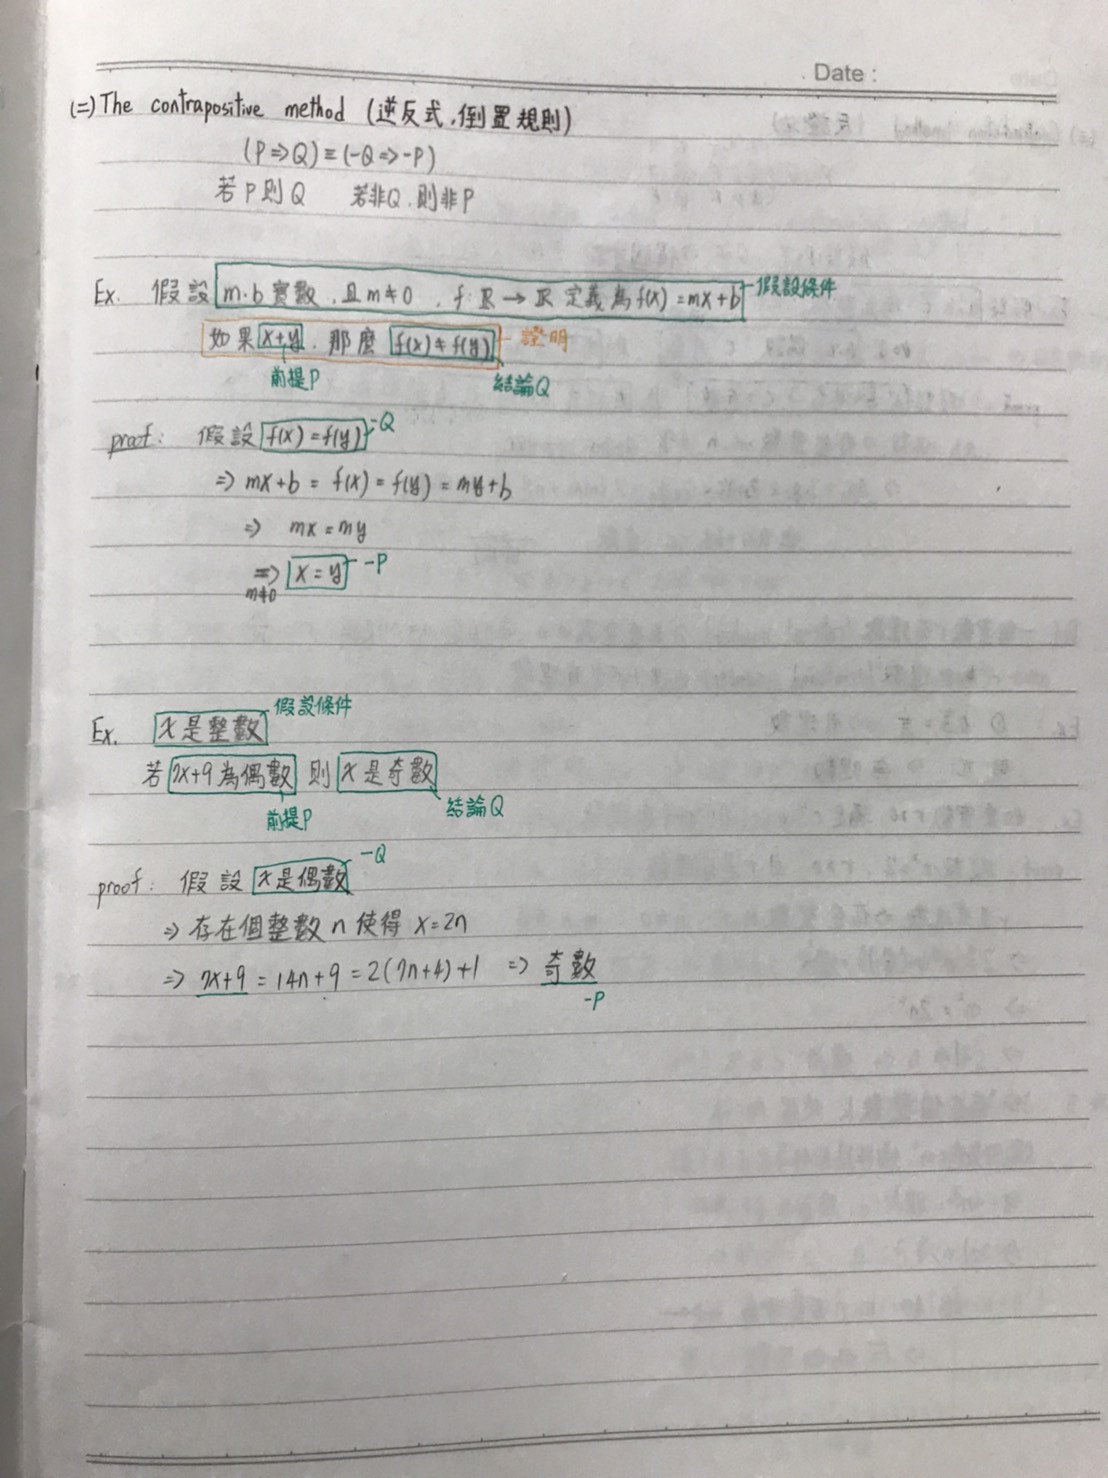 Date :
(二) The contrapositive method (逆反式,倒置規則)
(P⇒Q)≡(-Q⇒-P)
若P則Q 若非Q,則非P
Ex. 假設 m.b實數,且m≠0,f:ℝ→ℝ定義為f(x)=mx+b 假設條件
如果 x≠y,那麼 f(x)≠f(y) 證明
前提P 結論Q
proof: 假設 f(x)=f(y) -Q
⇒ mx+b = f(x) = f(y) = my+b
⇒ mx = my
⇒ x = y -P
m≠0
假設條件
Ex. x是整數
若 7x+9為偶數 則 x是奇數
前提P 結論Q
-Q
proof: 假設 x是偶數
⇒ 存在個整數n使得 x=2n
⇒ 7x+9 = 14n+9 = 2(7n+4)+1 ⇒ 奇數
-P